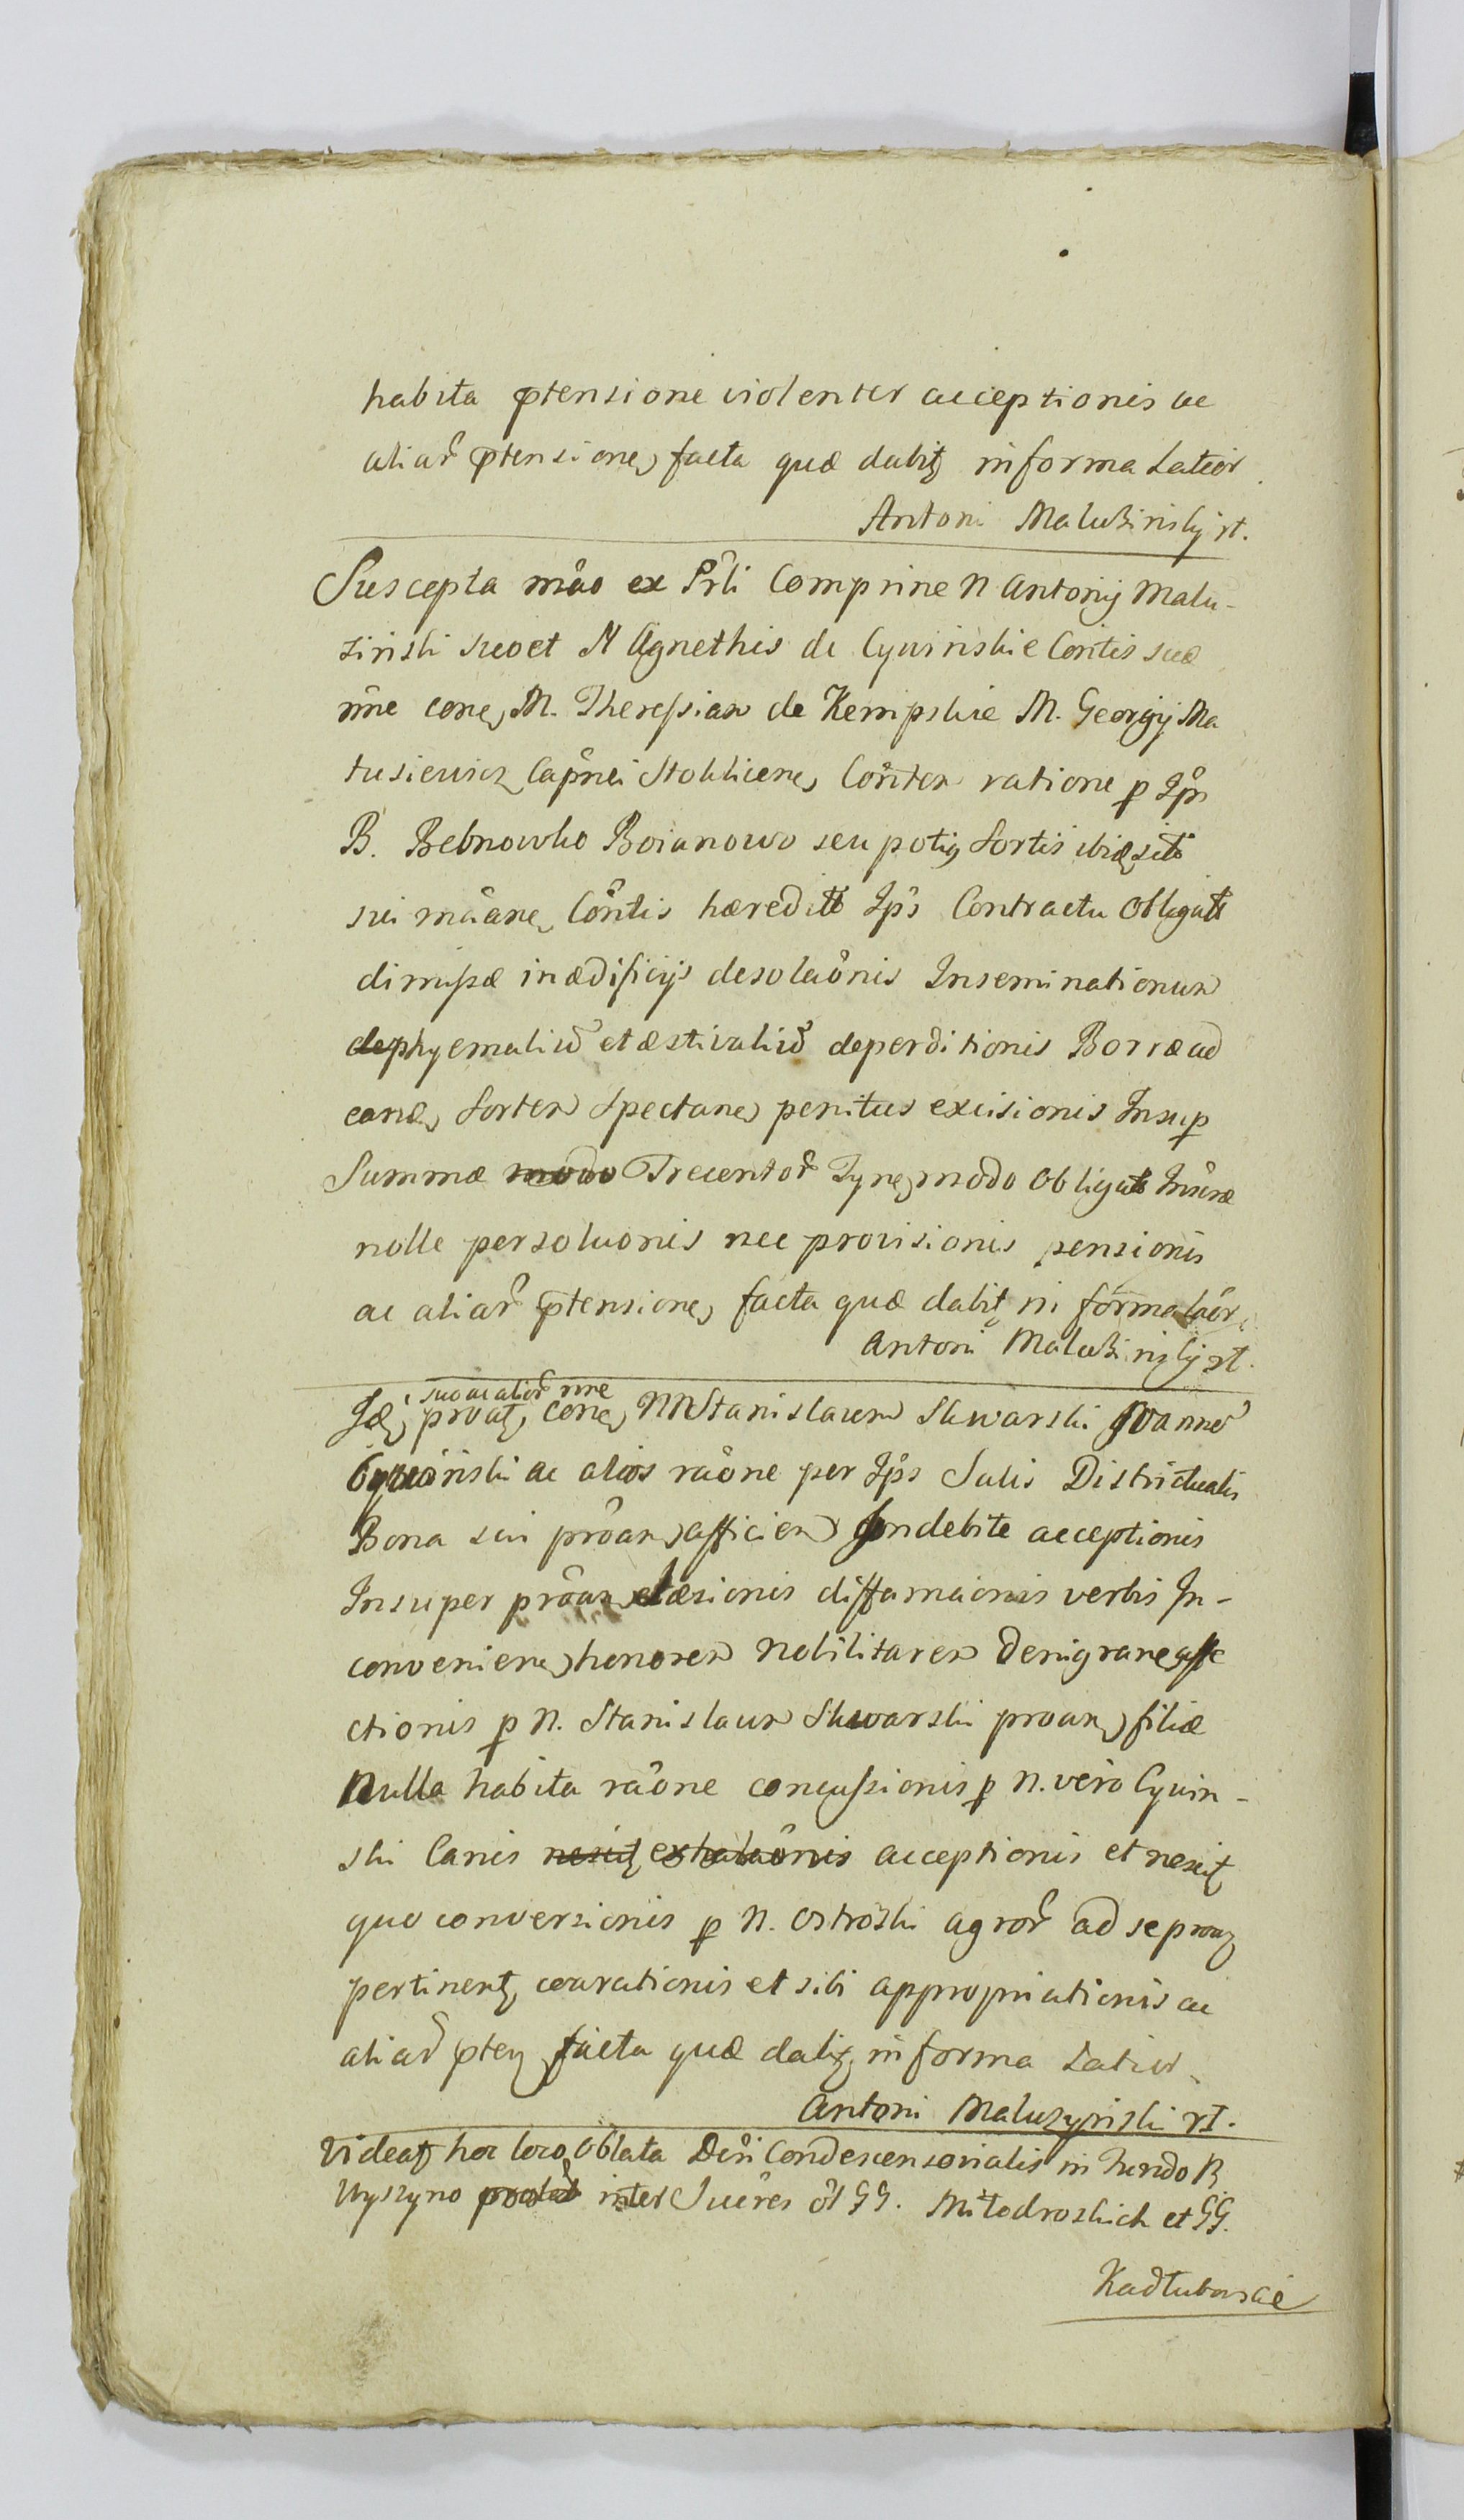 habita ptensione violenter acceptionis ac
aliar ptensione facta quæ dabit in forma Latior
Antoni Maluszinsky rt.
Suscepta mão ex Prli Comprine N Antonij Malu-
zinski suo et N Agnethis de Cywinskie Contis suæ
nne cone, M. Theressian de Kempskie M. Georgij Ma
tusiewicz Capnei Stokliene, Conten ratione p Ips
B. Bebnowko Boianowo seu potiq Sortis ibiq sitæ
sui mãane, Contis hæreditæ Ips Contractu Obligatt
dimissæ in ædificijs desolaonis Inseminationum
hyemaliu et æstivaliu deperditionis Borræ ad
eand, Sorten Spectane, penitus excisionis Insup
Summæ modo Trecentor Tyne, modo Obligatt
nolle persoluonis nec provisionis pensionis
ac aliar ptensione, facta quæ dabit in forma laor,
Antoni Maluszinsky rt.
suo ac alior nne
Id, proat, cone, NN Stanislaum Skwarski Joannes
Cywinski ac alios raone per Ips Salis Districtualis
Bona sui proan, afficien Indebite acceptionis
Insuper proan, læsionis diffamaionis verbis In-
conveniene, honorem Nobilitarem denigrane, affe
ctionis p N. Stanislaum Skwarski proan, filiæ
Nulla habita raone concussionis p N. vero Cywin-
ski Canis nesciq exhalaonis acceptionis et nesciq
quo conversionis p N. Ostroski agror ad se proaq
pertinent, coarationis et sibi appropriationis ac
aliar pten, facta quæ dabit, in forma Latior
Antoni Maluszynski rt.
Videat hoc loco Oblata Dcri Condescensorialis in Fundo B
Wyszyno inter Sucres ol GG. Miłodroskich et GG.
Kadłubowscie